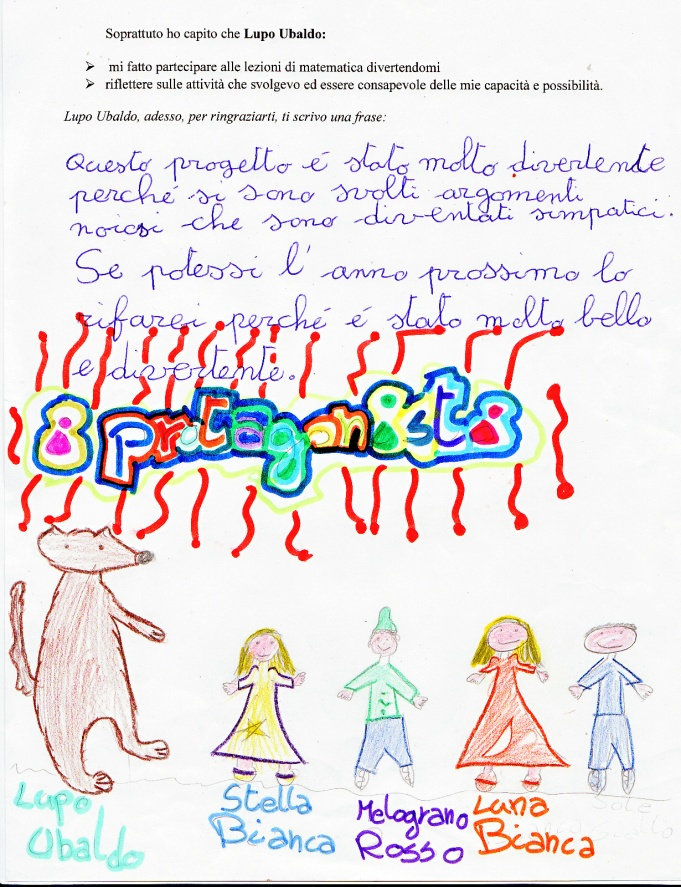 Soprattutto ho capito che Lupo Ubaldo:
➢ mi fatto partecipare alle lezioni di matematica divertendomi
➢ riflettere sulle attività che svolgevo ed essere consapevole delle mie capacità e possibilità.
Lupo Ubaldo, adesso, per ringraziarti, ti scrivo una frase:
Questo progetto é stato molto divertente
perché si sono svolti argomenti
noiosi che sono diventati simpatici.
Se potessi l' anno prossimo lo
rifarei perché é stato molto bello
e divertente.
i protagonisti
Lupo
Ubaldo
Stella
Bianca
Melograno
Rosso
Luna
Bianca
Sole